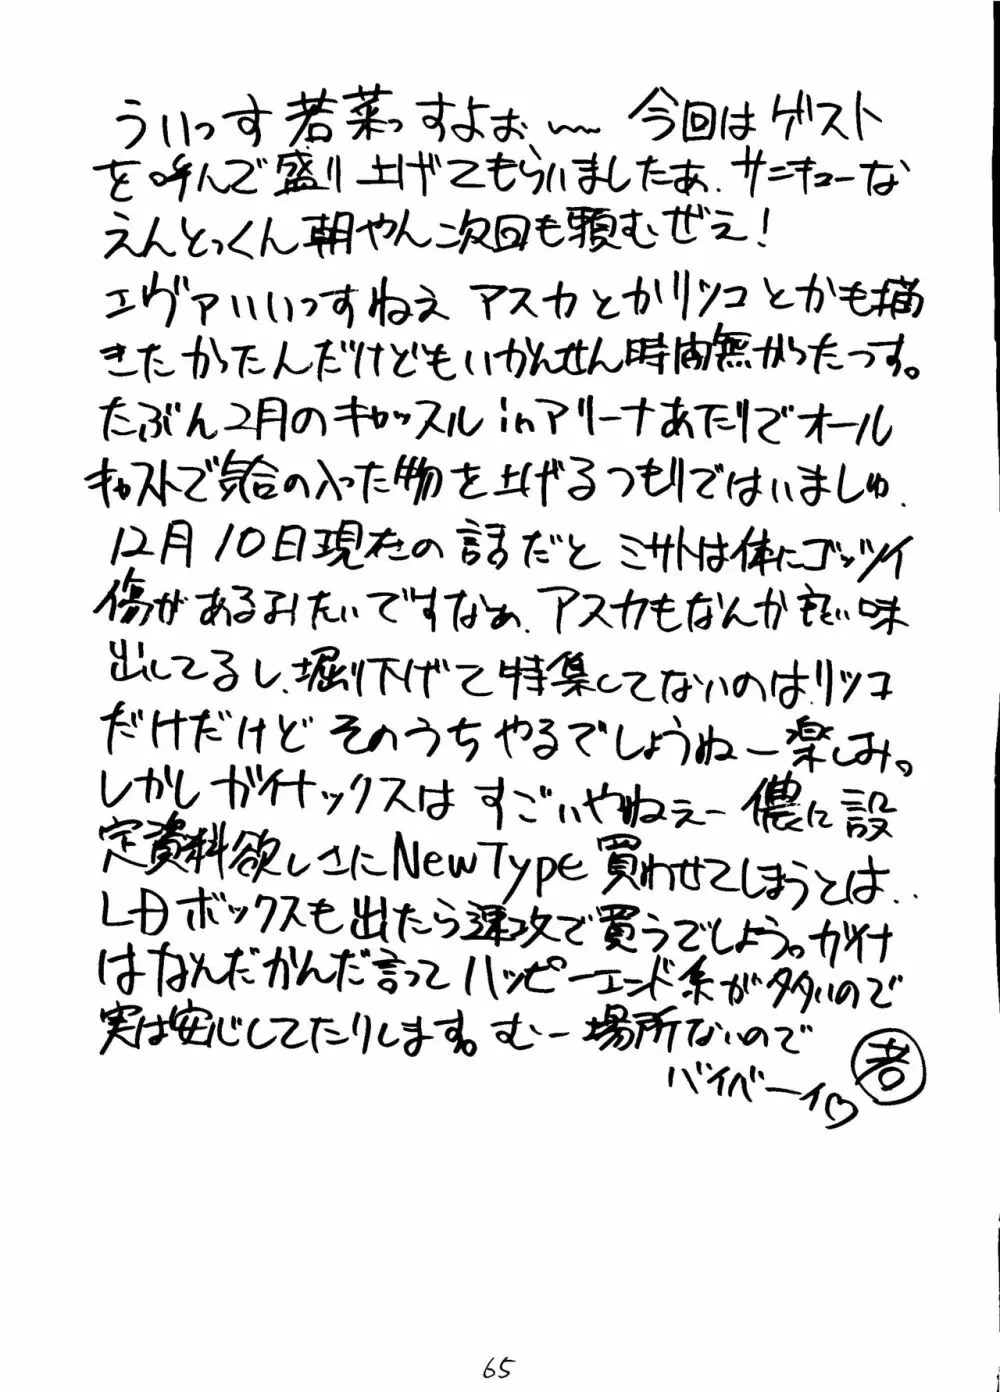 ういっす若菜っすよぉ、〜〜 今回はゲスト
を呼んで盛り上げてもらいましたあ、サンキューな
えんとっくん朝やん次回も頼むぜえ!
エヴァいいっすねえ アスカとかリツコとかも描
きたかったんだけどもいかんせん時間無かったっす。
たぶん2月のキャッスルinアリーナあたりでオール
キャストで気合の入った物を上げるつもりではいましゅ、
12月10日現在の話だと ミサトは体にゴッツイ
傷があるみたいですなぁ、アスカもなんかもい味
出してるし、堀り下げて特集してないのは、リツコ
だけだけど そのうちやるでしょうねー楽しみ。
しかしガイナックスは すごいやねぇー 儂に設
定資料欲しさにNewType買わせてしまうとは..
LDボックスも出たら速攻で買うでしょう。ガイナ
はなんだかんだ言ってハッピーエンド系が多いので
実は安心してたりします。むー場所ないので
バイベーイ♡ 若
65